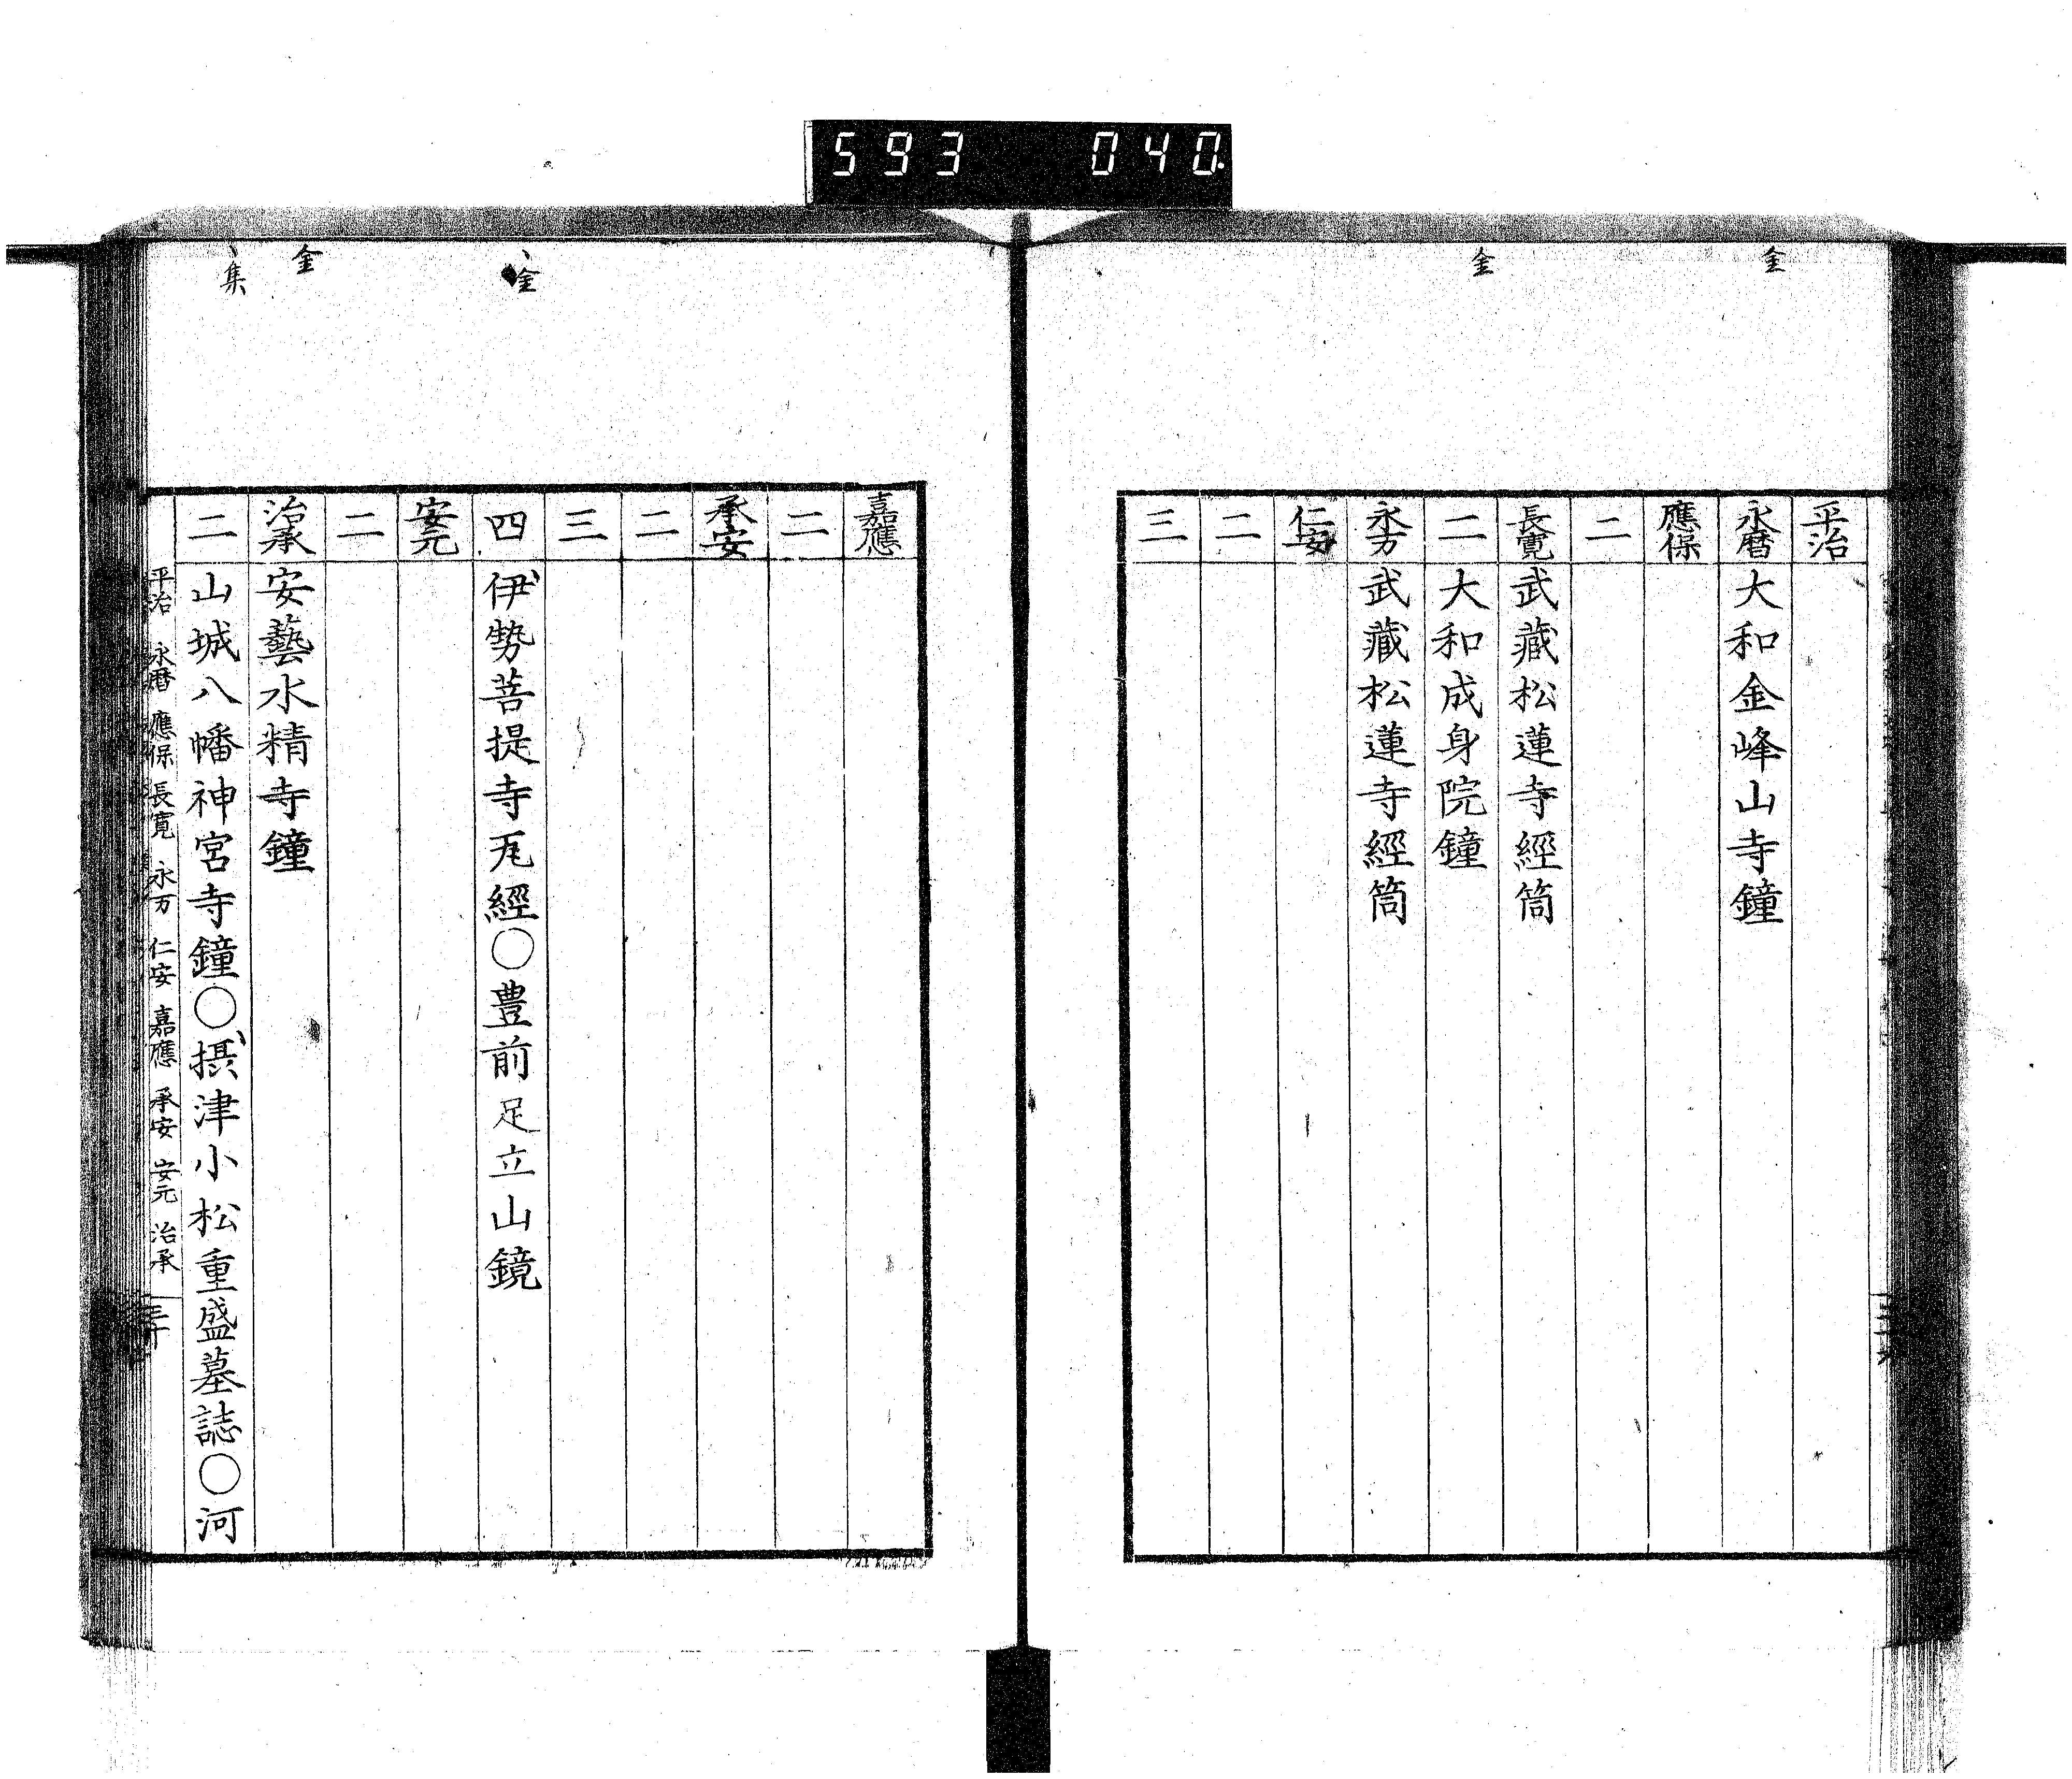 593 040.
金
金
平治
永暦 大和金峰山寺鐘
應保
二
長寛 武藏松蓮寺經筒
二 大和成身院鐘
永万 武藏松蓮寺經筒
仁安
二
三
金
金
集
嘉應
二
承安
二
三
四 伊勢菩提寺瓦經〇豊前足立山鏡
安元
二
治承 安藝水精寺鐘
二 山城八幡神宮寺鐘〇摂津小松重盛墓誌〇河
平治 永暦 應保 長寛 永万 仁安 嘉應 承安 安元 治承 三十